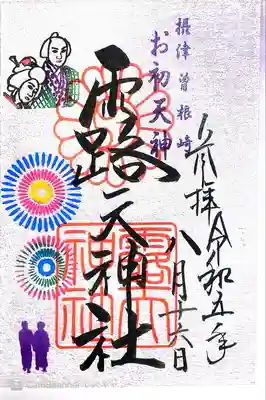 摂津曽根崎
お初天神
露天神社
奉拝令和五年
八月十六日